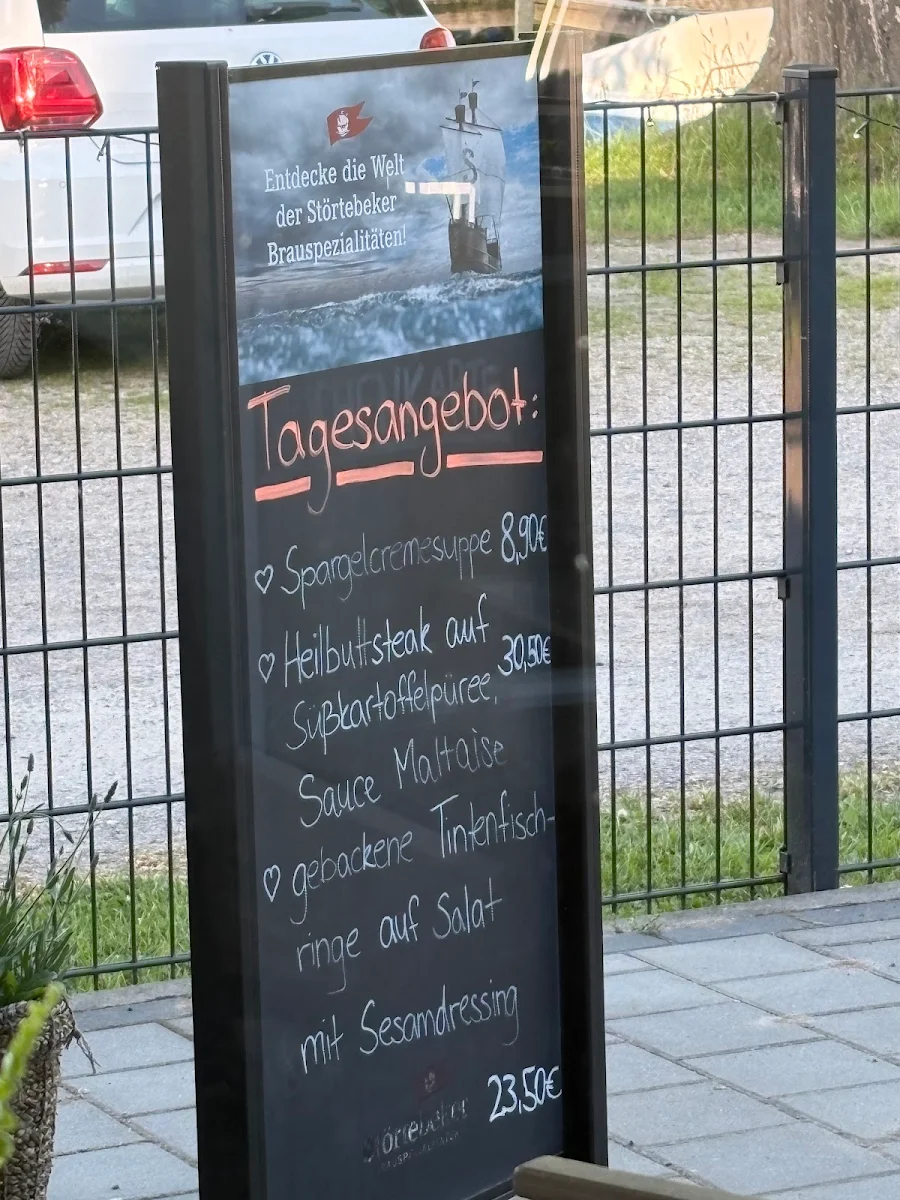 Entdecke die Welt
der Störtebeker
Brauspezialitäten!
Tagesangebot:
♡ Spargelcremesuppe 8,90€
♡ Heilbuttsteak auf
30,50€
Süßkartoffelpüree,
Sauce Maltaise
♡ gebackene Tintenfisch-
ringe auf Salat
mit Sesamdressing
23,50€
Störtebeker